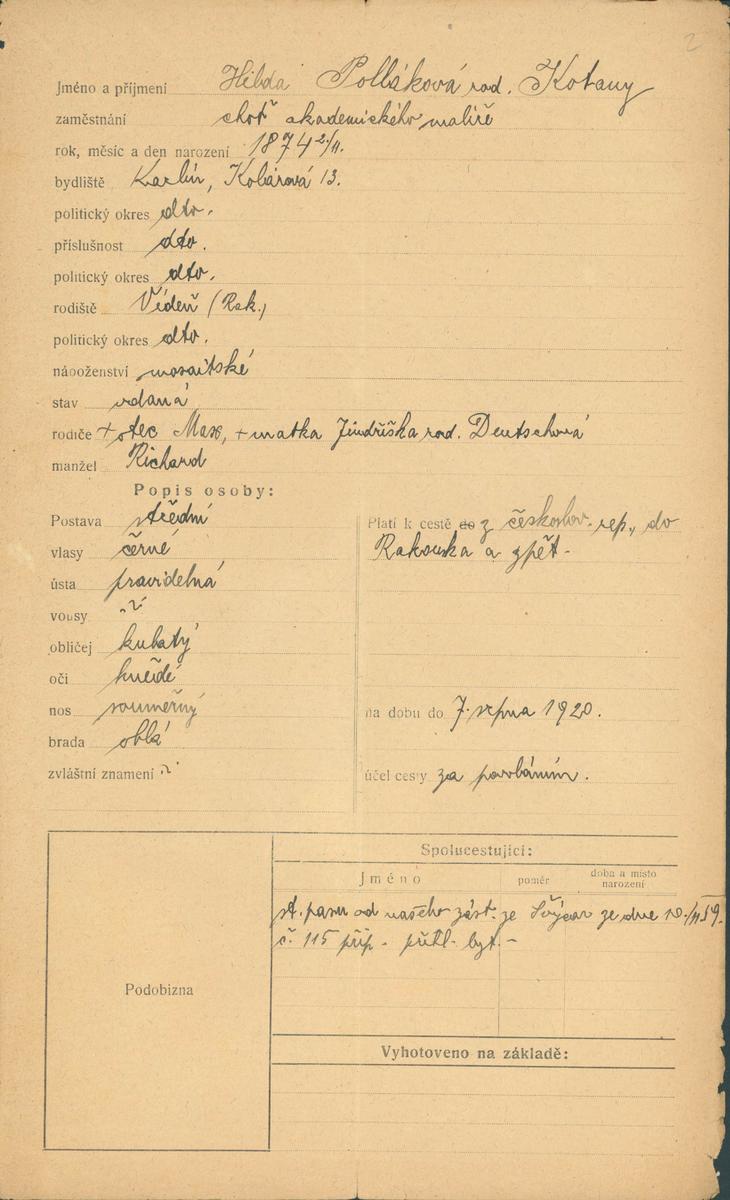 2
Jméno a příjmení Hilda Polláková rod. Kotany
zaměstnání choť akademického malíře
rok, měsíc a den narození 1874 2/11.
bydliště Karlín, Kolárová 13.
politický okres dto.
příslušnost dto.
politický okres dto.
rodiště Vídeň (Rak.)
politický okres dto.
náboženství mosaitské
stav vdaná
rodiče + otec Max, + matka Jindřiška rod. Deutschová
manžel Richard
Popis osoby:
Postava střední
vlasy černé
ústa pravidelná
vousy
obličej kulatý
oči hnědé
nos souměrný
brada oblá
zvláštní znamení
Platí k cestě do z českoslov. rep., do
Rakouska a zpět.
na dobu do 7. srpna 1920.
účel cesty za
Spolucestující:
Jméno poměr doba a místo narození
st. pasu od našeho zást. ze Švýcar ze dne
č. 115 příp. - přihl. byt. -
Podobizna
Vyhotoveno na základě: